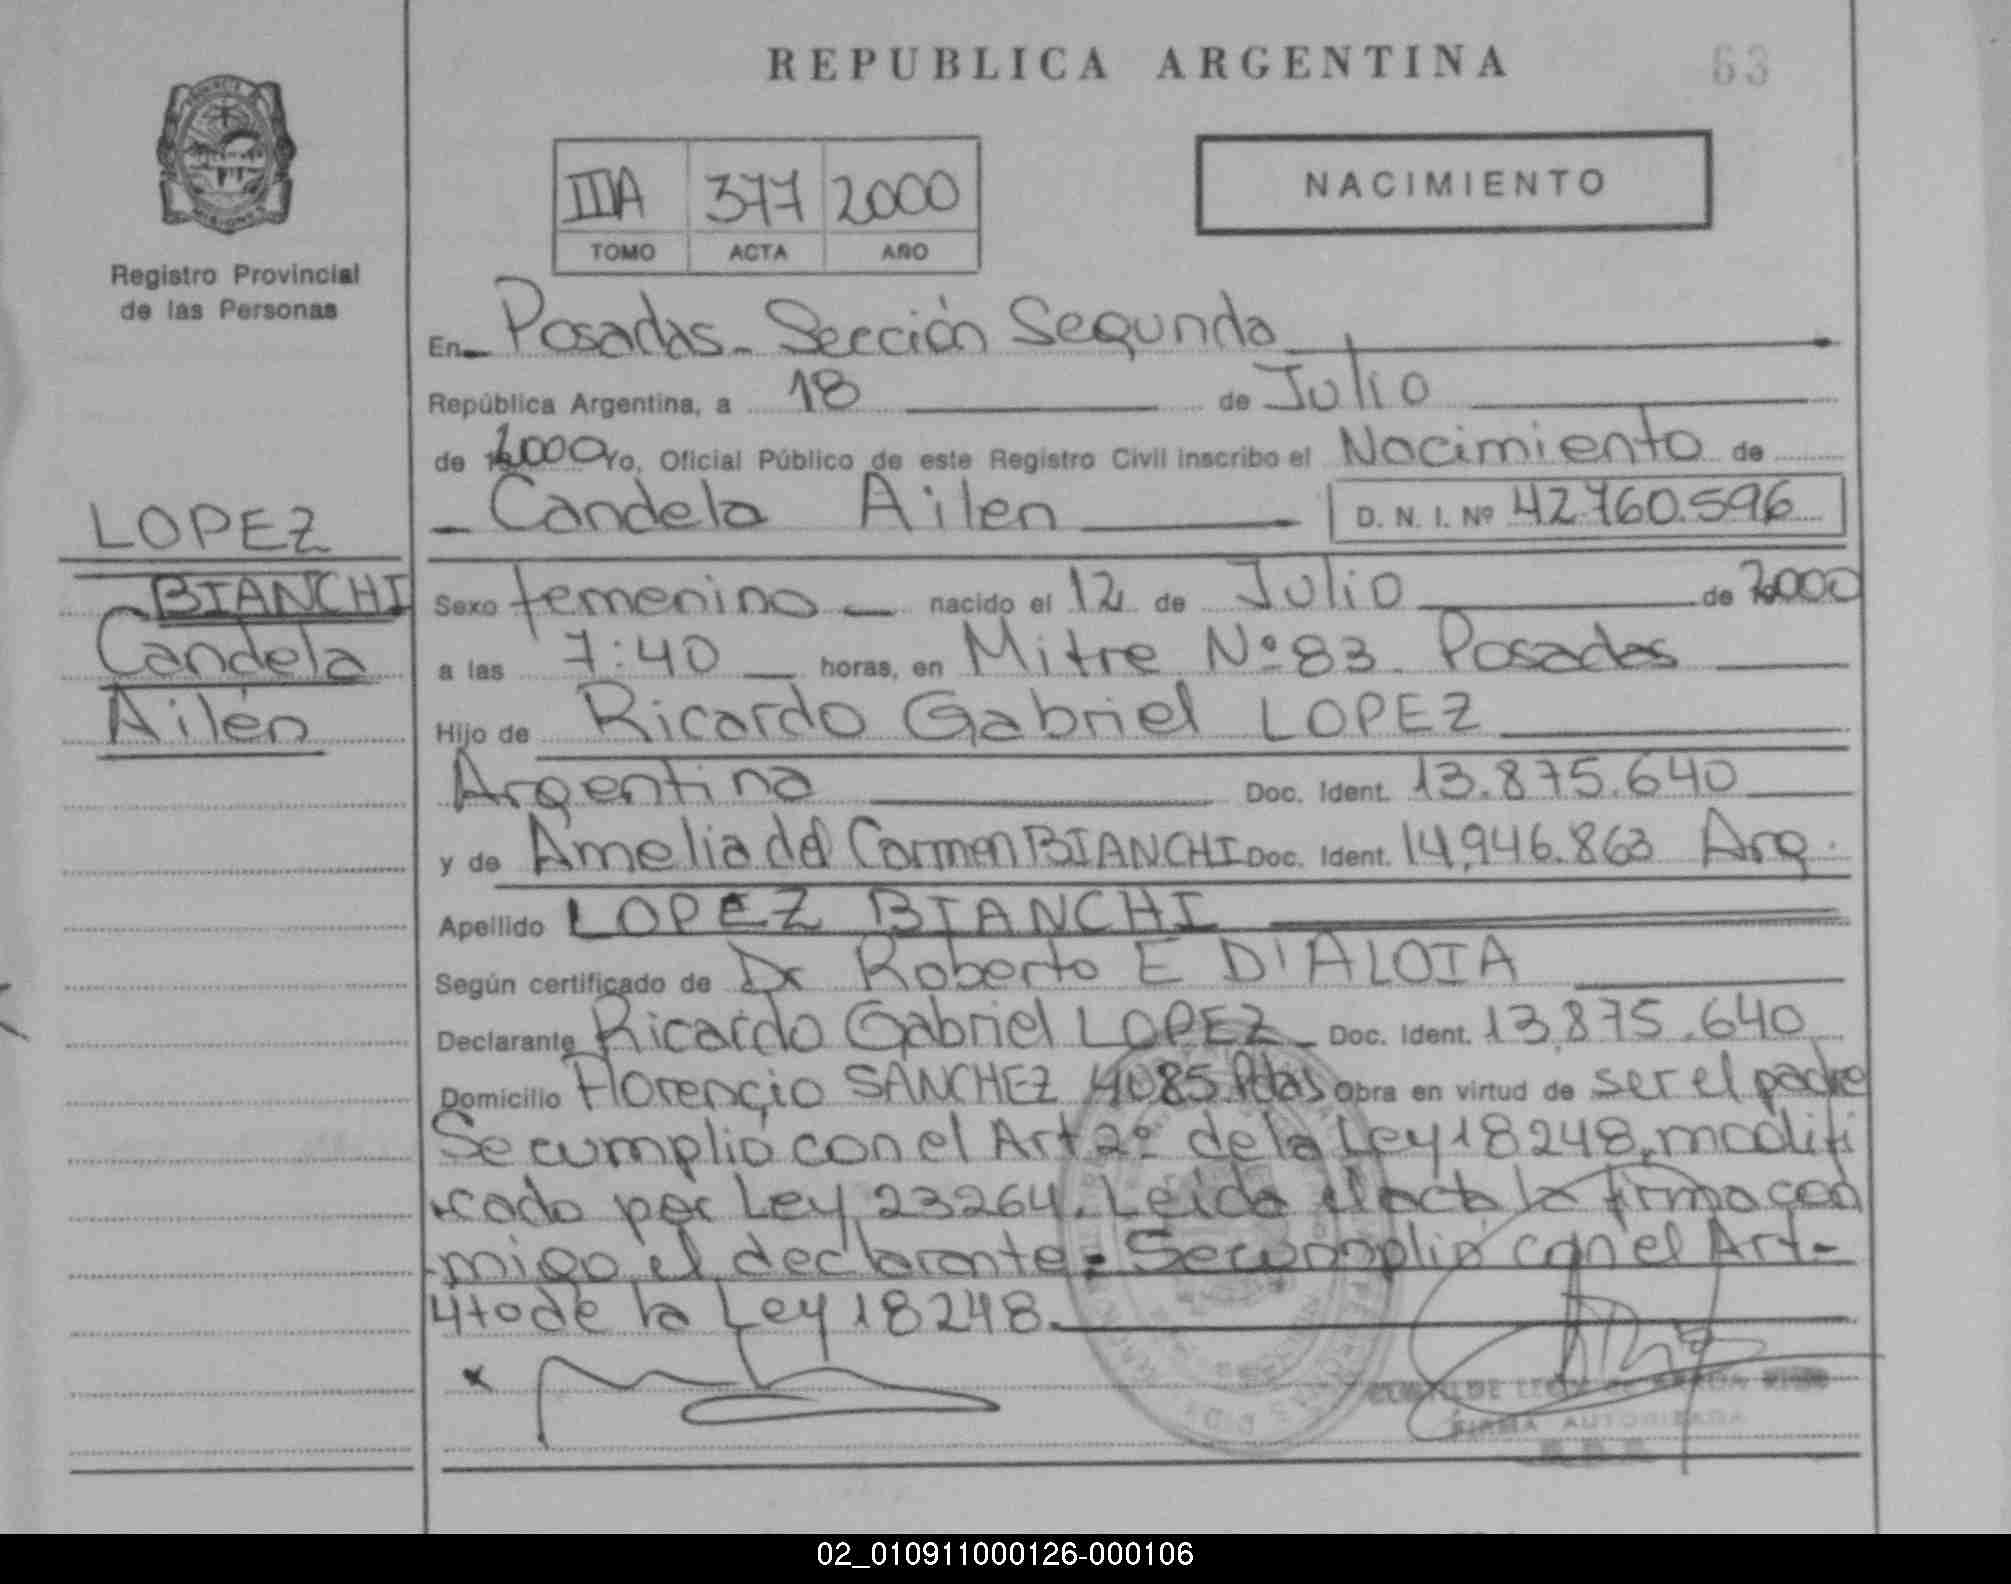 REPUBLICA ARGENTINA
63
Registro Provincial
de las Personas
IIIA 377 2000
TOMO ACTA AÑO
NACIMIENTO
En Posadas. Sección Segunda
República Argentina, a 18 de Julio
de 2000 Yo, Oficial Público de este Registro Civil inscribo el Nacimiento de
Candela Ailen D. N. I. Nº 42.760.596
LOPEZ
BIANCHI
Candela
Ailén
Sexo femenino nacido el 12 de Julio de 2000
a las 7:40 horas, en Mitre Nº 83. Posadas
Hijo de Ricardo Gabriel LOPEZ
Argentina Doc. Ident. 13.875.640
y de Amelia del Carmen BIANCHI Doc. Ident. 14,946.863 Arg.
Apellido LOPEZ BIANCHI
Según certificado de Dr Roberto E D'ALOIA
Declarante Ricardo Gabriel LOPEZ Doc. Ident. 13.875.640
Domicilio Florencio SANCHEZ 4085 Pdas Obra en virtud de ser el padre
Se cumplió con el Art 2º de la Ley 18248, modifi
cado por Ley 23264. Leida el acta la firma con
migo el declarante. Se cumplió con el Art-
4to de la Ley 18248.
FIRMA AUTORIZADA
02_010911000126-000106